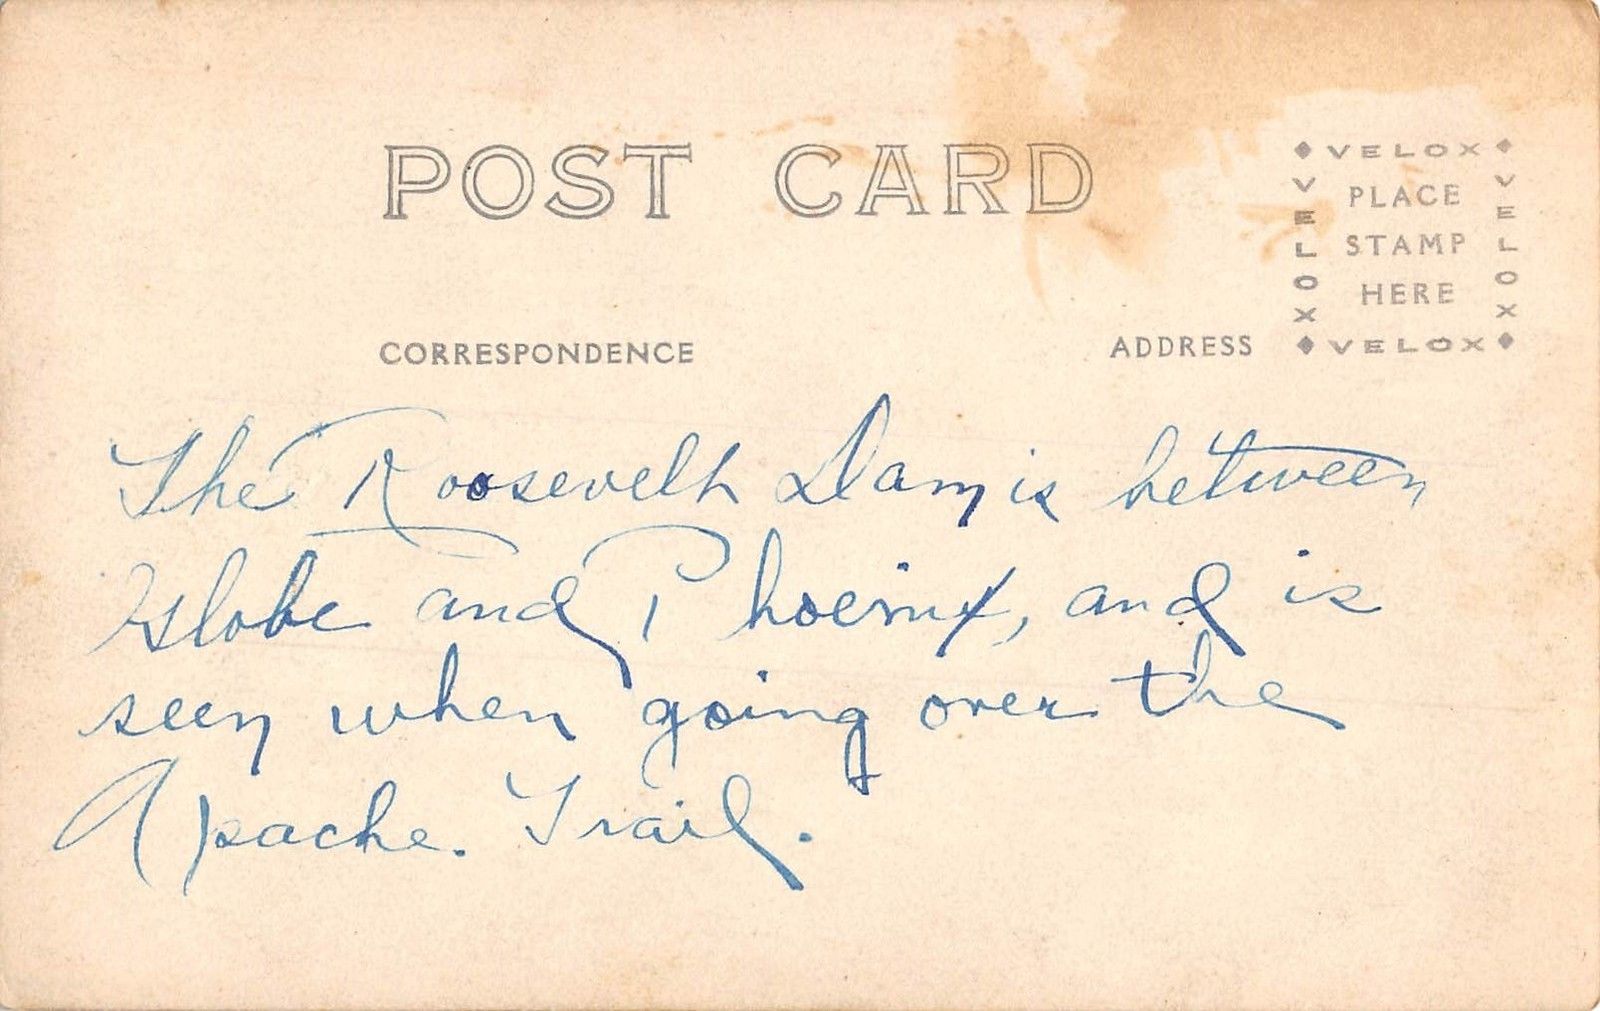 POST CARD
♦VELOX♦
VELOX
PLACE
STAMP
HERE
VELOX
♦VELOX♦
CORRESPONDENCE
ADDRESS
The Roosevelt Dam is between
Globe and Phoenix, and is
seen when going over the
Apache. Trail.